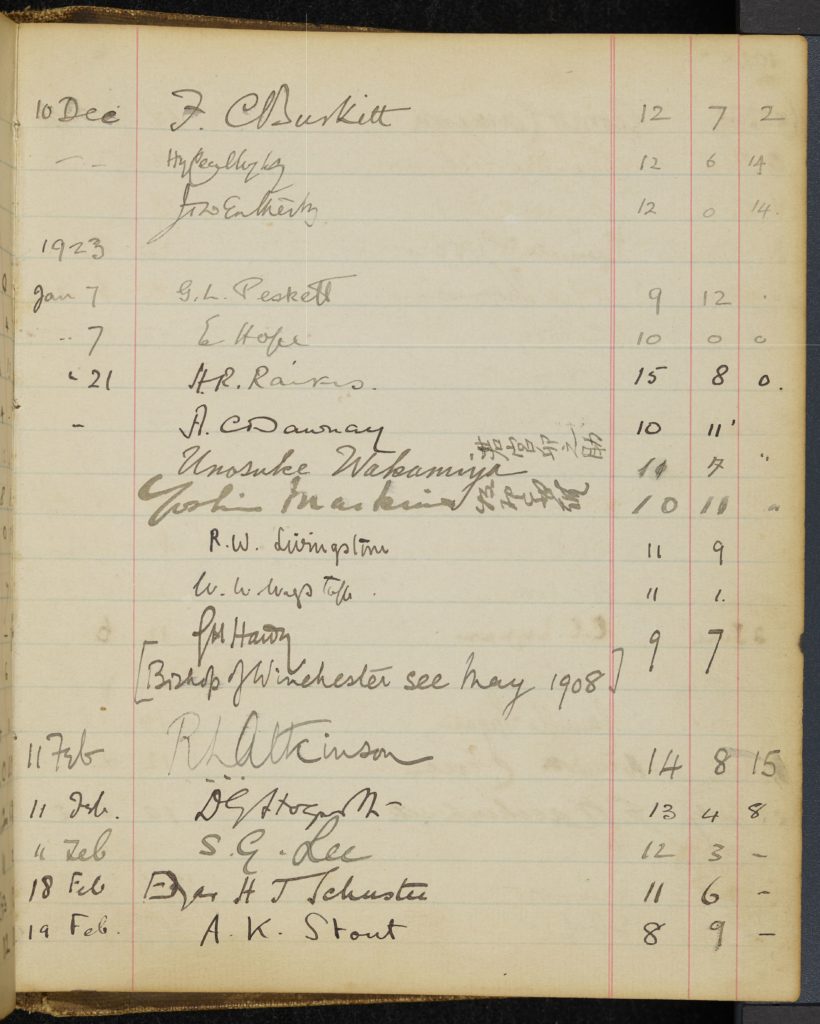 10 Dec F. C Burkitt 12 7 2
12 6 14
12 0 14
1923
Jan 7 G. L. Peskett 9 12 .
" 7 E Hope 10 0 0
" 21 H.R. Raikes. 15 8 0.
- A. C Dawnay 10 11
Unosuke Wakamiya 若宮卯之助 11 7 "
Yoshio Markino 10 11 "
R. W. Livingstone 11 9
W. W. Wagstaffe. 11 1.
GH Hardy 9 7
[Bishop of Winchester see May 1908]
11 Feb R L Atkinson 14 8 15
11 Feb. D G Hogarth - 13 4 8
" Feb S. G. Lee 12 3 -
18 Feb Edgar H J Schuster 11 6 -
19 Feb. A. K. Stout 8 9 -